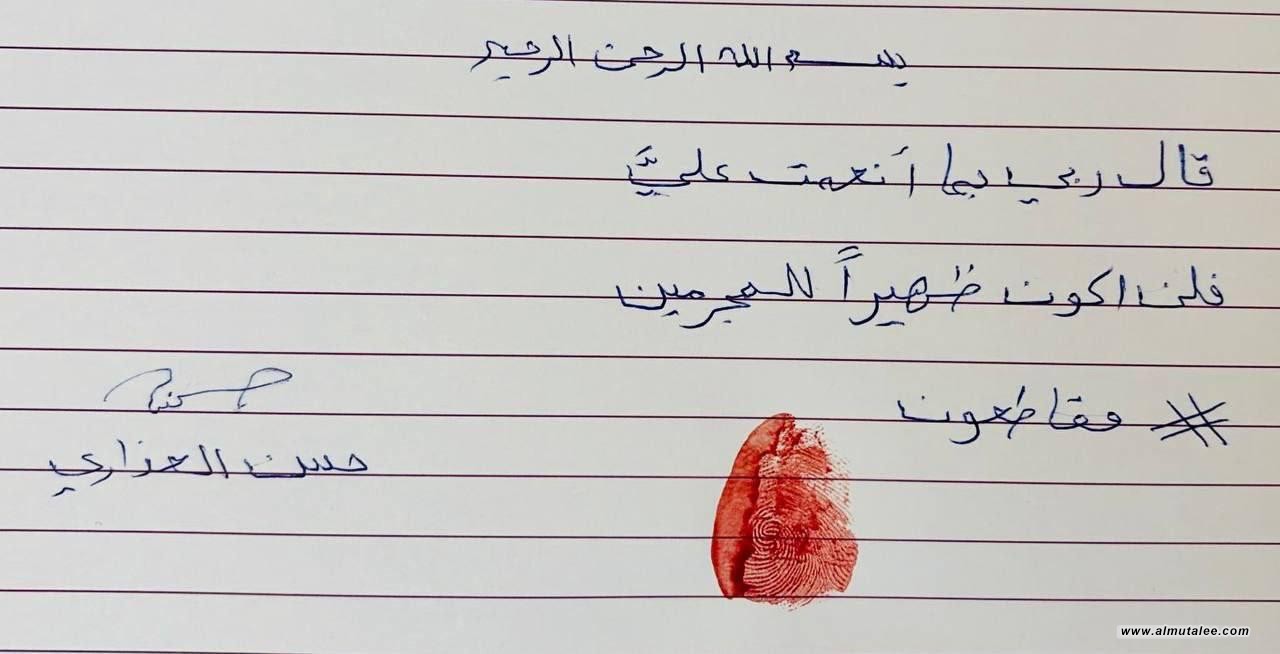 بسم الله الرحمن الرحيم
قال ربي بما أنعمت عليَّ
فلن اكون ظهيراً للمجرمين
# مقاطعون
حسن العذاري
www.almutalee.com